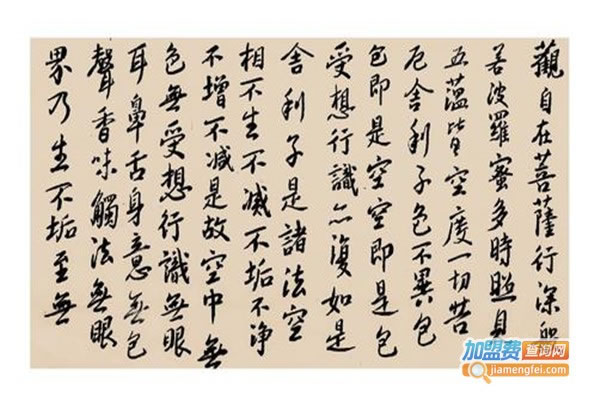 觀自在菩薩行深般
若波羅蜜多時照見
五蘊皆空度一切苦
厄舍利子色不異色
色即是空空即是色
受想行識亦復如是
舍利子是諸法空
相不生不滅不垢不淨
不增不减是故空中無
色無受想行識無眼
耳鼻舌身意無色
聲香味觸法無眼
界乃生不垢至無
加盟费查询网
jiamengfei.com